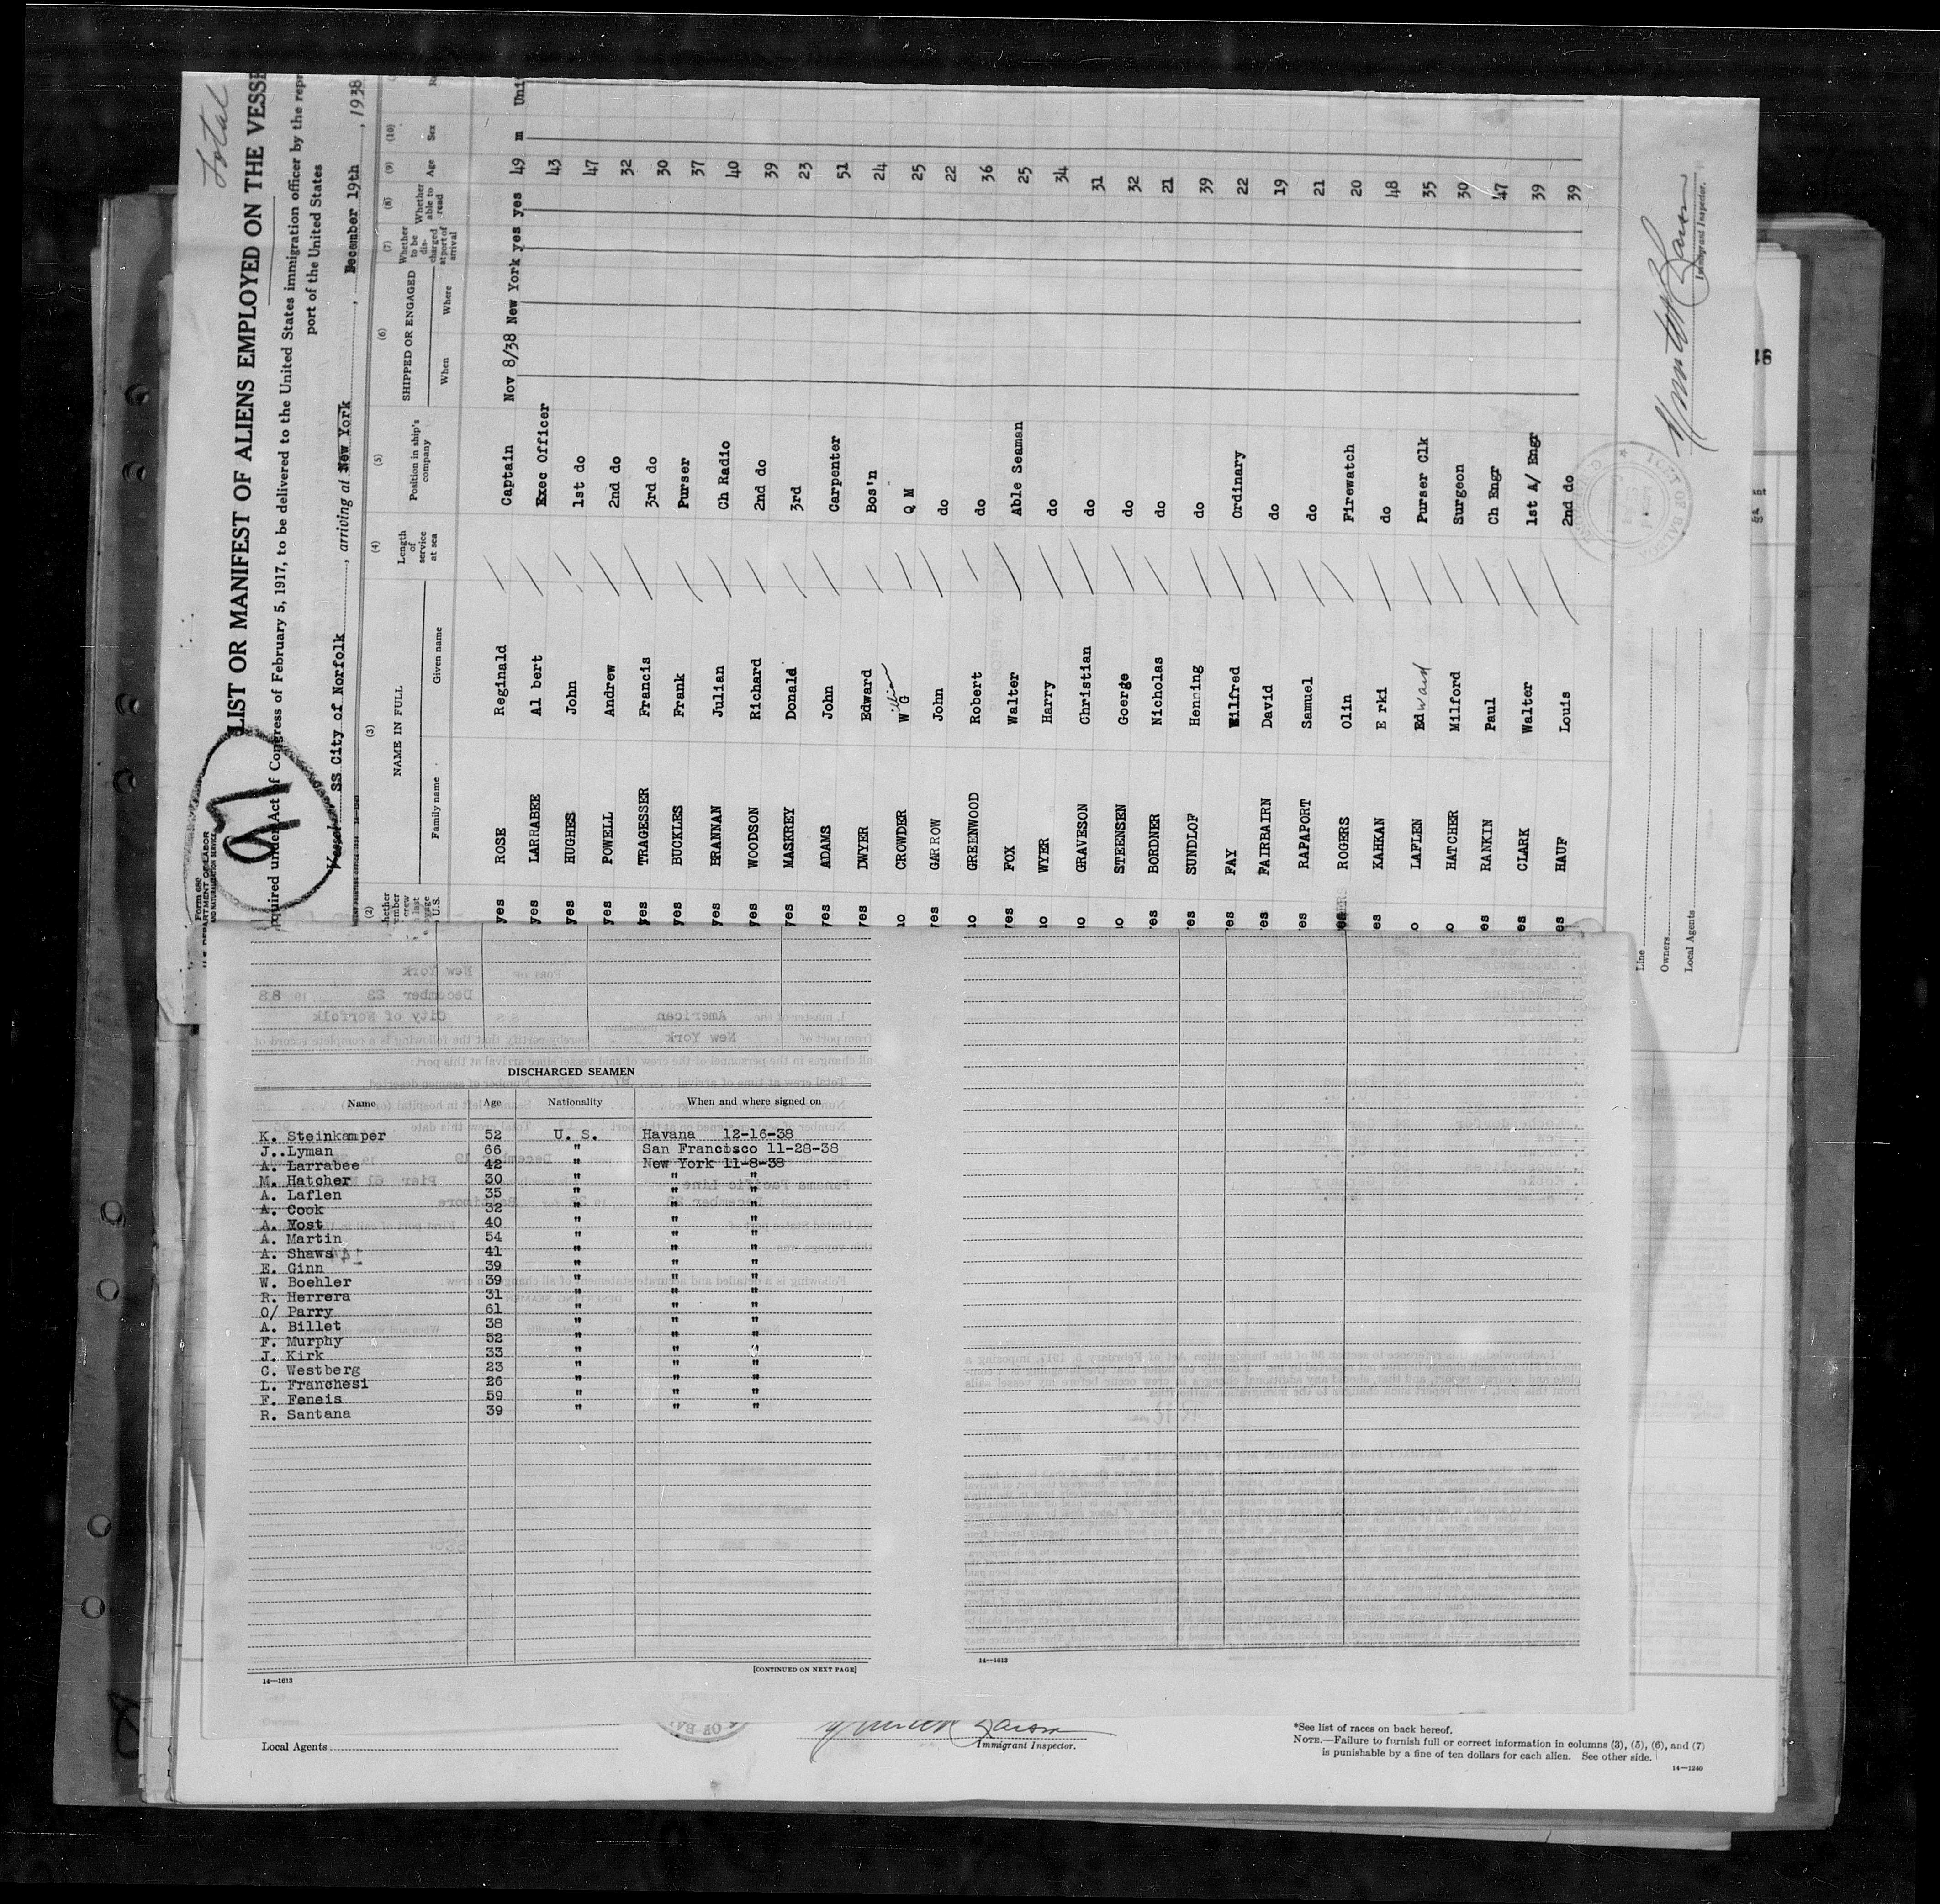 Total
97
Form 680
U.S. DEPARTMENT OF LABOR
LIST OR MANIFEST OF ALIENS EMPLOYED ON THE VESSE
quired under Act of Congress of February 5, 1917, to be delivered to the United States immigration officer by the repr
port of the United States
Vessel SS City of Norfolk, arriving at New York, December 19th, 1938
(2) (3) (4) (5) (6) (7) (8) (9) (10)
NAME IN FULL Length of service at sea Position in ship's company SHIPPED OR ENGAGED Whether to be discharged at port of arrival Whether able to read Age Sex
Family name Given name When Where
yes ROSE Reginald Captain Nov 8/38 New York yes yes 49 m Uni
yes LARRABEE Al bert Exec Officer 43
yes HUGHES John 1st do 47
yes POWELL Andrew 2nd do 32
yes TRAGESSER Francis 3rd do 30
yes BUCKLES Frank Purser 37
yes BRANNAN Julian Ch Radio 40
yes WOODSON Richard 2nd do 39
yes MASKREY Donald 3rd 23
yes ADAMS John Carpenter 51
yes DWYER Edward Bos'n 24
no CROWDER W G William Q M 25
yes GARROW John do 22
no GREENWOOD Robert do 36
yes FOX Walter Able Seaman 25
no WYER Harry do 34
no GRAVESON Christian do 31
no STEENSEN Goerge do 32
yes BORDNER Nicholas do 21
yes SUNDLOF Henning do 39
yes FAY Wilfred Ordinary 22
yes FAIRBAIRN David do 19
yes RAPAPORT Samuel do 21
ROGERS Olin Firewatch 20
es KAHKAN E rki do 48
o LAFLEN Edward Purser Clk 35
o HATCHER Milford Surgeon 30
es RANKIN Paul Ch Engr 47
es CLARK Walter 1st A/ Engr 39
es HAUF Louis 2nd do 39
Line
Owners
Local Agents
Immigrant Inspector.
46
DISCHARGED SEAMEN
Name Age Nationality When and where signed on
K. Steinkamper 52 U. S. Havana 12-16-38
J..Lyman 66 " San Francisco 11-28-38
A. Larrabee 42 " New York 11-8-38
M. Hatcher 30 " " "
A. Laflen 35 " " "
A. Cook 32 " " "
A. Yost 40 " " "
A. Martin 54 " " "
A. Shaws 41 " " "
E. Ginn 39 " " "
W. Boehler 39 " " "
R. Herrera 31 " " "
O/ Parry 61 " " "
A. Billet 38 " " "
F. Murphy 52 " " "
J. Kirk 33 " " "
C. Westberg 23 " " "
L. Franchesi 26 " " "
F. Feneis 59 " " "
R. Santana 39 " " "
[CONTINUED ON NEXT PAGE]
14—1613
14—1613
Local Agents
Immigrant Inspector.
*See list of races on back hereof.
NOTE.—Failure to furnish full or correct information in columns (3), (5), (6), and (7)
is punishable by a fine of ten dollars for each alien. See other side.
14—1240